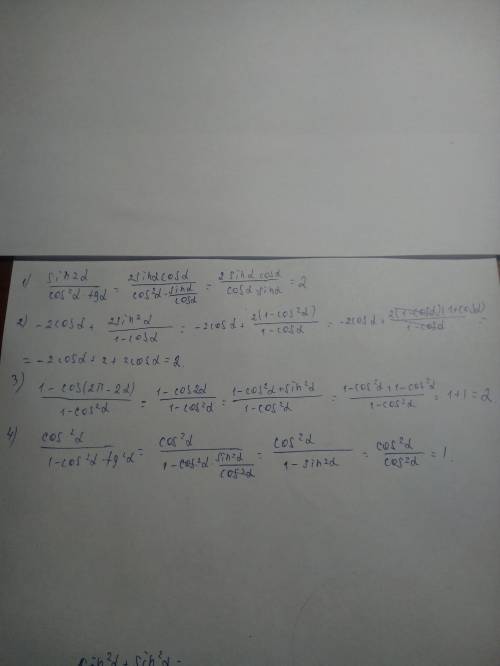 1) sin2α / cos²α tgα = 2sinα cosα / cos²α · sinα/cosα = 2 sinα cosα / cosα · sinα = 2
2) -2cosα + 2sin²α / 1-cosα = -2cosα + 2(1-cos²α) / 1-cosα = -2cosα + 2(1-cosα)(1+cosα) / 1-cosα =
= -2cosα + 2 + 2cosα = 2.
3) 1 - cos(2π - 2α) / 1-cos²α = 1-cos2α / 1-cos²α = 1-cos²α + sin²α / 1-cos²α = 1-cos²α + 1-cos²α / 1-cos²α = 1+1 = 2.
4) cos²α / 1-cos²α · tg²α = cos²α / 1-cos²α · sin²α/cos²α = cos²α / 1 - sin²α = cos²α / cos²α = 1.
sin²α + sin²α =